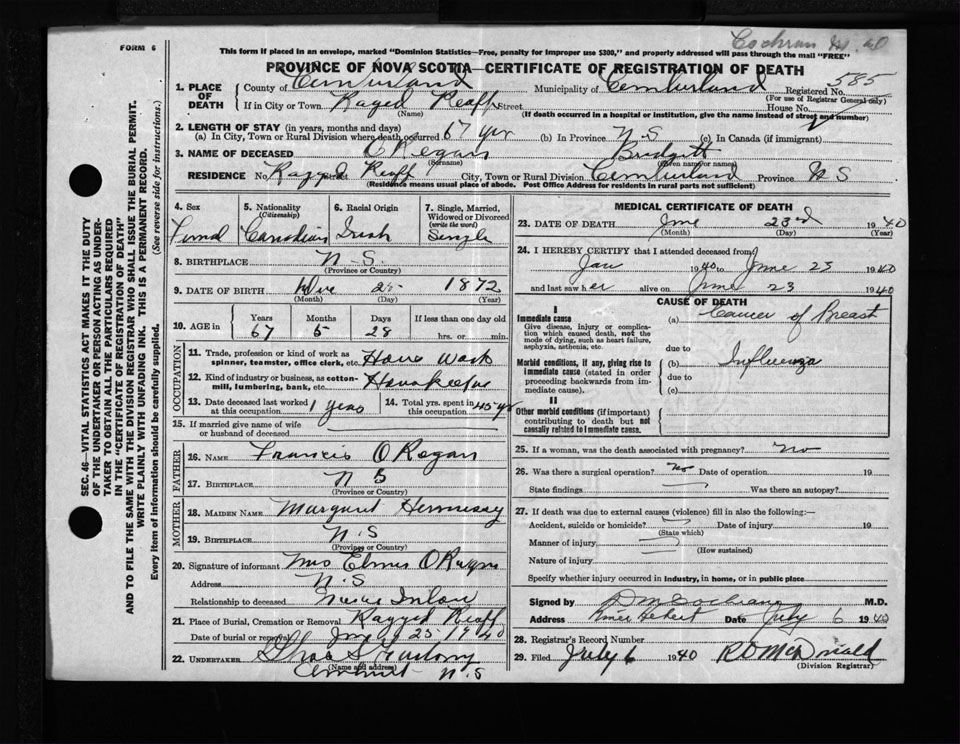 FORM 6
Cochran
This form if placed in an envelope, marked "Dominion Statistics—Free, penalty for improper use $300," and properly addressed will pass through the mail "FREE"
PROVINCE OF NOVA SCOTIA—CERTIFICATE OF REGISTRATION OF DEATH
585
1. PLACE OF DEATH
County of Cumberland Municipality of Cumberland Registered No.
(For use of Registrar General only)
If in City or Town Raged Reaff Street House No.
(Name) (If death occurred in a hospital or institution, give the name instead of street and number)
2. LENGTH OF STAY (in years, months and days)
(a) In City, Town or Rural Division where death occurred 67 yr (b) In Province N S (c) In Canada (if immigrant)
3. NAME OF DECEASED O Regan Bridgitt
(Surname) (Given name or names)
RESIDENCE No. Ragged Reaff Street City, Town or Rural Division Cumberland Province N S
(Residence means usual place of abode. Post Office Address for residents in rural parts not sufficient)
4. Sex 5. Nationality (Citizenship) 6. Racial Origin 7. Single, Married, Widowed or Divorced (write the word)
Canadian Irish Single
8. BIRTHPLACE N. S.
(Province or Country)
9. DATE OF BIRTH 25 1872
(Month) (Day) (Year)
10. AGE in Years Months Days If less than one day old
67 5 28 hrs. or min.
OCCUPATION
11. Trade, profession or kind of work as spinner, teamster, office clerk, etc. House Work
12. Kind of industry or business, as cotton-mill, lumbering, bank, etc.
13. Date deceased last worked at this occupation 1 years 14. Total yrs. spent in this occupation 45 yr
15. If married give name of wife or husband of deceased
FATHER
16. NAME Francis O Regan
17. BIRTHPLACE N B
(Province or Country)
MOTHER
18. MAIDEN NAME Margaret Hennessy
19. BIRTHPLACE N. S
(Province or Country)
20. Signature of informant Mrs Elmer O Regan
Address N. S
Relationship to deceased
21. Place of Burial, Cremation or Removal Ragged Reaff
Date of burial or removal June 25 1940
22. UNDERTAKER
(Name and address)
N. S
MEDICAL CERTIFICATE OF DEATH
23. DATE OF DEATH June 23rd 1940
(Month) (Day) (Year)
24. I HEREBY CERTIFY that I attended deceased from
Jan 1940 to June 23 1940
and last saw her alive on June 23 1940
CAUSE OF DEATH
I
Immediate cause
Give disease, injury or complication which caused death, not the mode of dying, such as heart failure, asphyxia, asthenia, etc.
(a) Cancer of Breast
due to
Morbid conditions, if any, giving rise to immediate cause (stated in order proceeding backwards from immediate cause).
(b) Influenza
due to
(c)
II
Other morbid conditions (if important) contributing to death but not causally related to immediate cause.
25. If a woman, was the death associated with pregnancy? no
26. Was there a surgical operation? no Date of operation 19
State findings Was there an autopsy?
27. If death was due to external causes (violence) fill in also the following:—
Accident, suicide or homicide? Date of injury 19
(State which)
Manner of injury
(How sustained)
Nature of injury
Specify whether injury occurred in industry, in home, or in public place
Signed by D M Cochrane M.D.
Address Date July 6 1940
28. Registrar's Record Number
29. Filed July 6 1940 R D McDonald
(Division Registrar)
SEC. 46—VITAL STATISTICS ACT MAKES IT THE DUTY
OF THE UNDERTAKER OR PERSON ACTING AS UNDER-
TAKER TO OBTAIN ALL THE PARTICULARS REQUIRED
IN THE "CERTIFICATE OF REGISTRATION OF DEATH"
AND TO FILE THE SAME WITH THE DIVISION REGISTRAR WHO SHALL ISSUE THE BURIAL PERMIT.
WRITE PLAINLY WITH UNFADING INK. THIS IS A PERMANENT RECORD.
Every item of information should be carefully supplied. (See reverse side for instructions.)